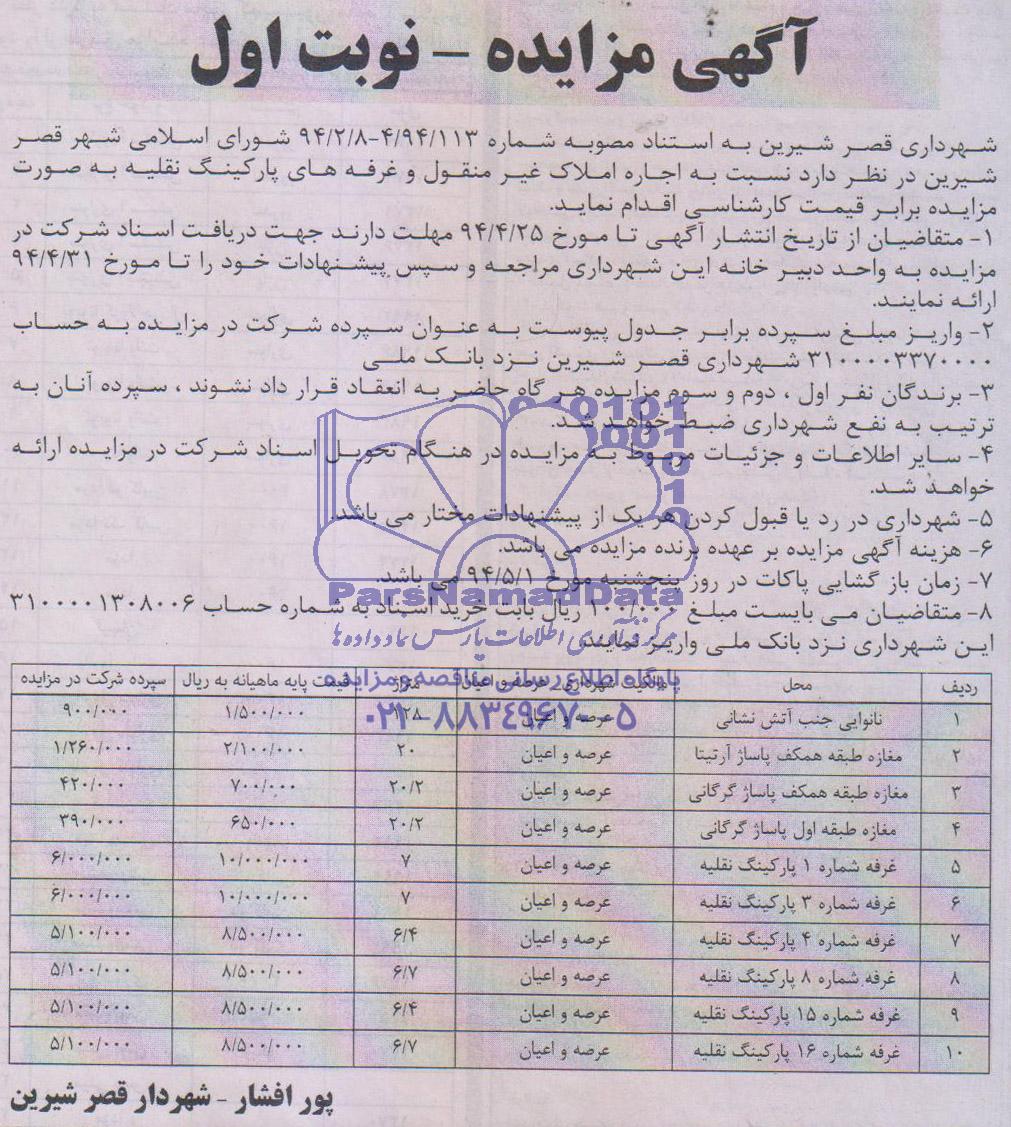 آگهی مزایده - نوبت اول
شهرداری قصر شیرین به استناد مصوبه شماره ۴/۹۴/۱۱۳-۹۴/۲/۸ شورای اسلامی شهر قصر
شیرین در نظر دارد نسبت به اجاره املاک غیر منقول و غرفه های پارکینگ نقلیه به صورت
مزایده برابر قیمت کارشناسی اقدام نماید.
۱- متقاضیان از تاریخ انتشار آگهی تا مورخ ۹۴/۴/۲۵ مهلت دارند جهت دریافت اسناد شرکت در
مزایده به واحد دبیر خانه این شهرداری مراجعه و سپس پیشنهادات خود را تا مورخ ۹۴/۴/۳۱
ارائه نمایند.
۲- واریز مبلغ سپرده برابر جدول پیوست به عنوان سپرده شرکت در مزایده به حساب
۳۱۰۰۰۰۳۳۷۰۰۰۰ شهرداری قصر شیرین نزد بانک ملی
۳- برندگان نفر اول ، دوم و سوم مزایده هر گاه حاضر به انعقاد قرار داد نشوند ، سپرده آنان به
ترتیب به نفع شهرداری ضبط خواهد شد.
۴- سایر اطلاعات و جزئیات مربوط به مزایده در هنگام تحویل اسناد شرکت در مزایده ارائه
خواهد شد.
۵- شهرداری در رد یا قبول کردن هر یک از پیشنهادات مختار می باشد.
۶- هزینه آگهی مزایده بر عهده برنده مزایده می باشد.
۷- زمان باز گشایی پاکات در روز پنجشنبه مورخ ۹۴/۵/۱ می باشد.
ParsNamadData
۸- متقاضیان می بایست مبلغ ۱۰۰/۰۰۰ ریال بابت خرید اسناد به شماره حساب ۳۱۰۰۰۰۱۳۰۸۰۰۶
این شهرداری نزد بانک ملی واریز نمایند
مرکز فن‌آوری اطلاعات پارس نماد داده ها
پایگاه اطلاع رسانی مناقصه و مزایده
ردیف محل مالکیت شهرداری/ عرصه و اعیان متراژ قیمت پایه ماهیانه به ریال سپرده شرکت در مزایده
۰۲۱-۸۸۳۴۹۶۷۰-۵
۱ نانوایی جنب آتش نشانی عرصه و اعیان ۱۲۸ ۱/۵۰۰/۰۰۰ ۹۰۰/۰۰۰
۲ مغازه طبقه همکف پاساژ آرتیتا عرصه و اعیان ۲۰ ۲/۱۰۰/۰۰۰ ۱/۲۶۰/۰۰۰
۳ مغازه طبقه همکف پاساژ گرگانی عرصه و اعیان ۲۰/۲ ۷۰۰/۰۰۰ ۴۲۰/۰۰۰
۴ مغازه طبقه اول پاساژ گرگانی عرصه و اعیان ۲۰/۲ ۶۵۰/۰۰۰ ۳۹۰/۰۰۰
۵ غرفه شماره ۱ پارکینگ نقلیه عرصه و اعیان ۷ ۱۰/۰۰۰/۰۰۰ ۶/۰۰۰/۰۰۰
۶ غرفه شماره ۳ پارکینگ نقلیه عرصه و اعیان ۷ ۱۰/۰۰۰/۰۰۰ ۶/۰۰۰/۰۰۰
۷ غرفه شماره ۴ پارکینگ نقلیه عرصه و اعیان ۶/۴ ۸/۵۰۰/۰۰۰ ۵/۱۰۰/۰۰۰
۸ غرفه شماره ۸ پارکینگ نقلیه عرصه و اعیان ۶/۷ ۸/۵۰۰/۰۰۰ ۵/۱۰۰/۰۰۰
۹ غرفه شماره ۱۵ پارکینگ نقلیه عرصه و اعیان ۶/۴ ۸/۵۰۰/۰۰۰ ۵/۱۰۰/۰۰۰
۱۰ غرفه شماره ۱۶ پارکینگ نقلیه عرصه و اعیان ۶/۷ ۸/۵۰۰/۰۰۰ ۵/۱۰۰/۰۰۰
پور افشار - شهردار قصر شیرین